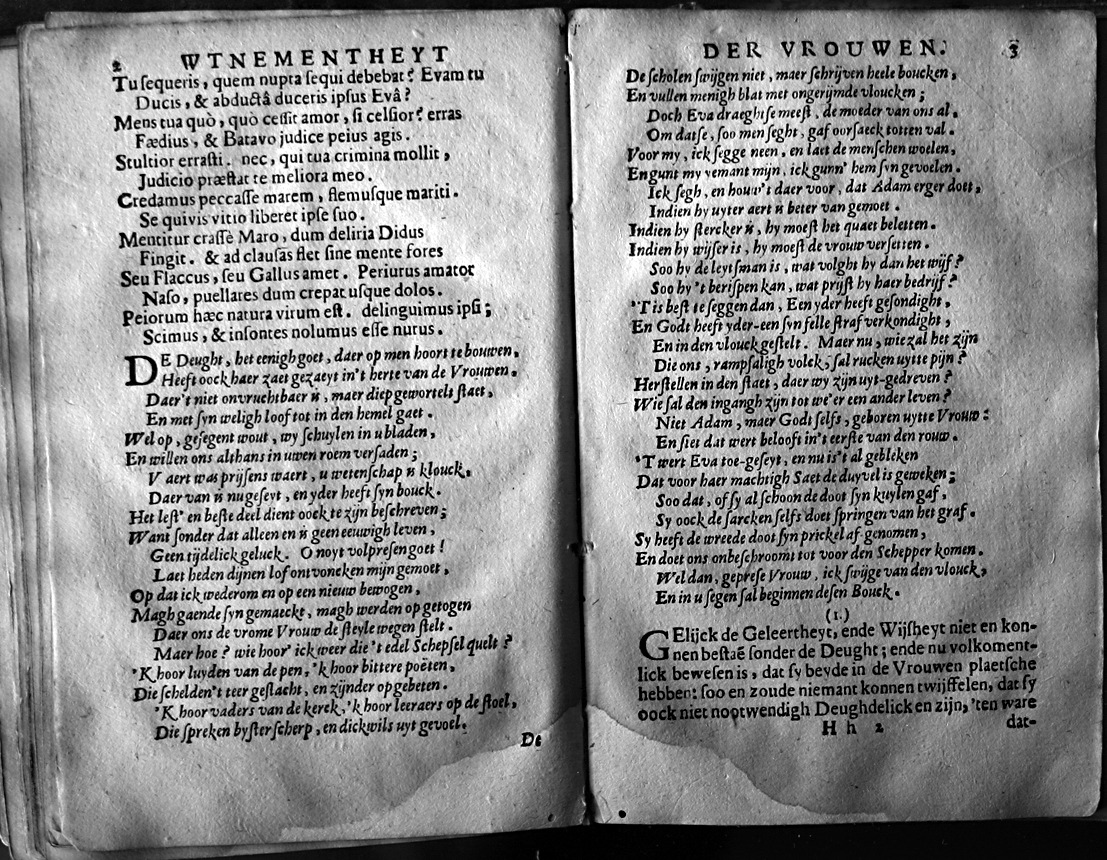 2 WTNEMENTHEYT
Tu sequeris, quem nupta sequi debebat? Evam tu
Ducis, & abductâ duceris ipsus Evâ?
Mens tua quò, quò cessit amor, si celsior? erras
Fœdius, & Batavo judice peius agis.
Stultior errasti. nec, qui tua crimina mollit,
Judicio præstat te meliora meo.
Credamus peccasse marem, flemusque mariti.
Se quivis vitio liberet ipse suo.
Mentitur crassè Maro, dum deliria Didus
Fingit. & ad clausas flet sine mente fores
Seu Flaccus, seu Gallus amet. Periurus amator
Naso, puellares dum crepat usque dolos.
Peiorum hæc natura virum est. delinguimus ipsi;
Scimus, & insontes nolumus esse nurus.
DE Deught, het eenigh goet, daer op men hoort te bouwen,
Heeft oock haer zaet gezaeyt in't herte van de Vrouwen.
Daer't niet onvruchtbaer is, maer diep gewortelt staet,
En met syn weligh loof tot in den hemel gaet.
Wel op, gesegent wout, wy schuylen in u bladen,
En willen ons althans in uwen roem versaden;
V aert was prijsens waert, u wetenschap is klouck.
Daer van is nu geseyt, en yder heeft syn bouck.
Het lest' en beste deel dient oock te zijn beschreven;
Want sonder dat alleen en is geen eeuwigh leven,
Geen tijdelick geluck. O noyt volpresen goet!
Laet heden dijnen lof ontvoncken mijn gemoet,
Op dat ick wederom en op een nieuw bewogen,
Magh gaende syn gemaeckt, magh werden op getogen
Daer ons de vrome Vrouw de steyle wegen stelt.
Maer hoe? wie hoor' ick weer die 't edel Schepsel quelt?
'K hoor luyden van de pen, 'k hoor bittere poëten,
Die schelden't teer geslacht, en zijnder op gebeten.
'K hoor vaders van de kerck, 'k hoor leeraers op de stoel,
Die spreken byster scherp, en dickwils uyt gevoel.
De
DER VROUWEN. 3
De scholen swijgen niet, maer schrijven heele boucken,
En vullen menigh blat met ongerijmde vloucken;
Doch Eva draeght se meest, de moeder van ons al,
Om datse, soo men seght, gaf oorsaeck totten val.
Voor my, ick segge neen, en laet de menschen woelen,
En gunt my yemant mijn, ick gunn' hem syn gevoelen.
Ick segh, en houw't daer voor, dat Adam erger doet,
Indien hy uyter aert is beter van gemoet.
Indien hy stercker is, hy moest het quaet beletten.
Indien hy wijser is, hy moest de vrouw versetten.
Soo hy de leytsman is, wat volght hy dan het wijf?
Soo hy 't berispen kan, wat prijst hy haer bedrijf?
'T is best te seggen dan, Een yder heeft gesondight,
En Godt heeft yder-een syn felle straf verkondight,
En in den vlouck gestelt. Maer nu, wie zal het zijn
Die ons, rampsaligh volck, sal rucken uytte pijn?
Herstellen in den staet, daer wy zijn uyt-gedreven?
Wie sal den ingangh zijn tot we'er een ander leven?
Niet Adam, maer Godt selfs, geboren uytte Vrouw:
En siet dat wert belooft in't eerste van den rouw.
'T wert Eva toe-geseyt, en nu is't al gebleken
Dat voor haer machtigh Saet de duyvel is geweken;
Soo dat, of sy al schoon de doot syn kuylen gaf,
Sy oock de sarcken selfs doet springen van het graf.
Sy heeft de wreede doot syn prickel af genomen,
En doet ons onbeschroomt tot voor den Schepper komen.
Wel dan, geprese Vrouw, ick swijge van den vlouck,
En in u segen sal beginnen desen Bouck.
(1.)
GElijck de Geleertheyt, ende Wijsheyt niet en kon-
nen bestaẽ sonder de Deught; ende nu volkoment-
lick bewesen is, dat sy beyde in de Vrouwen plaetsche
hebben: soo en zoude niemant konnen twijffelen, dat sy
oock niet nootwendigh Deughdelick en zijn, 'ten ware
H h 2 dat-